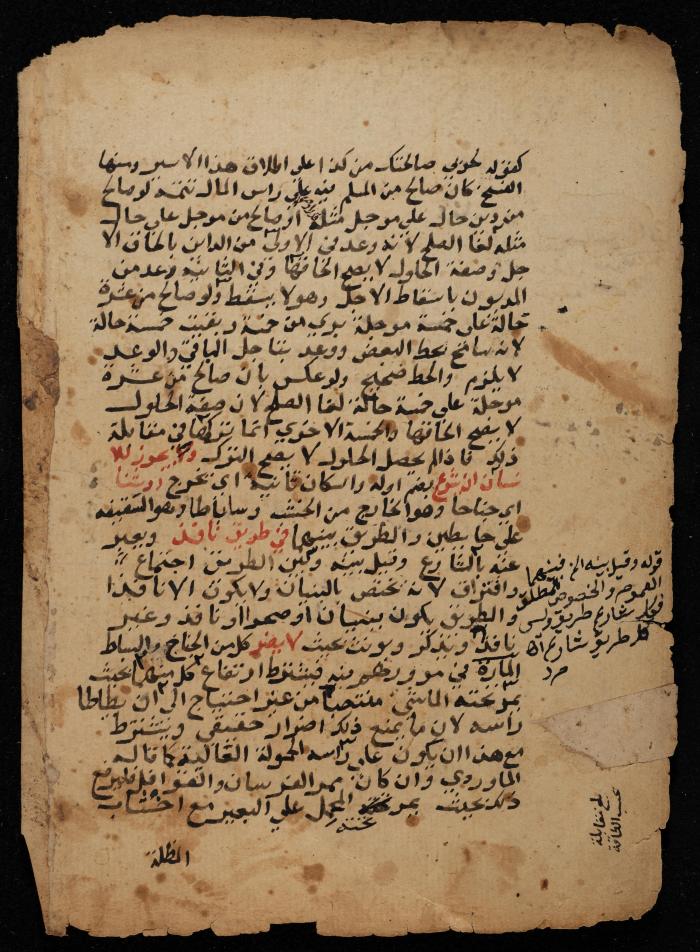 كقوله لحربي صالحتك من كذا على اطلاق هذا الاسير ومنها
الفسخ كان صالح من المسلم فيه علي راس المال تتمة لو صالح
من دين حال علي موجل مثله او صالح من موجل علي حال
مثله لغا الصلح لانه وعد في الاولى من الداين بالحاق الا
جل وصفة الحلول لا يصح الحاقها وفي الثانية وعد من
المديون باسقاط الاجل وهو لا يسقط ولو صالح من عشرة
حالة على خمسة موجلة بري من خمسة وبقيت خمسة حالة
لانه سامح بحط البعض ووعد بتاجيل الباقي والوعد
لا يلزم والحط صحيح ولو عكس بان صالح من عشرة
موجلة علي خمسة حالة لغا الصلح لان صفة الحلول
لا يصح الحاقها والخمسة الاخري انما تركها في مقابلة
ذلك فاذا لم يحصل الحلول لا يصح الترك ويجوز للا
نسان ان يشرع بضم اوله واسكان ثانيه اي يخرج روشنا
اي جناحا وهو الخارج من الخشب وساباطا وهو السقيفة
علي حايطين والطريق بينهما في طريق نافذ ويعبر
عنه بالشارع وقيل بينه وبين الطريق اجتماع
وافتراق لانه يختص بالبنيان ولا يكون الا نافذا
والطريق يكون ببنيان او صحرا او نافذ وغير
نافذ ويذكر ويونث بحيث لا يضر كل من الجناح والساباط
المارة في مرورهم فيه فيشترط ارتفاع كل منهما بحيث
يمر تحته الماشي منتصبا من غير احتياج الى ان يطاطا
راسه لان ما يمنع ذلك اضرار حقيقي ويشترط
مع هذا ان يكون علي راسه الحمولة الغالبة كما قاله
الماوردي وان كان ممر الفرسان والقوافل فليرفع
ذلك بحيث يمر تحته المحمل علي البعير مع اخشاب
المظلة
قوله وقيل بينه الخ فبينهما
العموم والخصوص المطلق
فكل شارع طريق وليس
كل طريق شارع اه
بلغ مقابلة
بحسب الطاقة